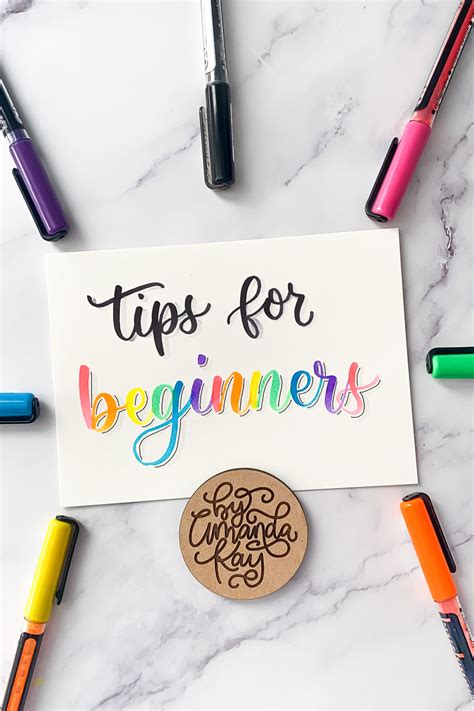 tips for
beginners
by
Amanda
Kay